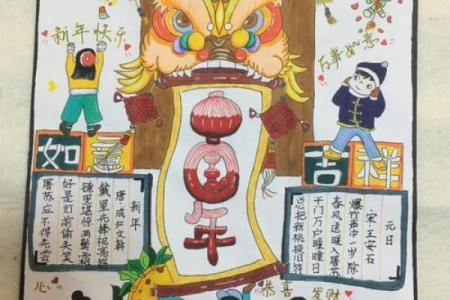 新年快乐
万事如意
年
如意
吉祥
新年
唐·成仁文幹
戴星先捧祝尧觞
镜里堪惊两鬓霜
好是灯前偷失笑
屠苏应不得先尝
元日
宋·王安石
爆竹声中一岁除
春风送暖入屠苏
千门万户曈曈日
总把新桃换旧符
心
恭喜
发财